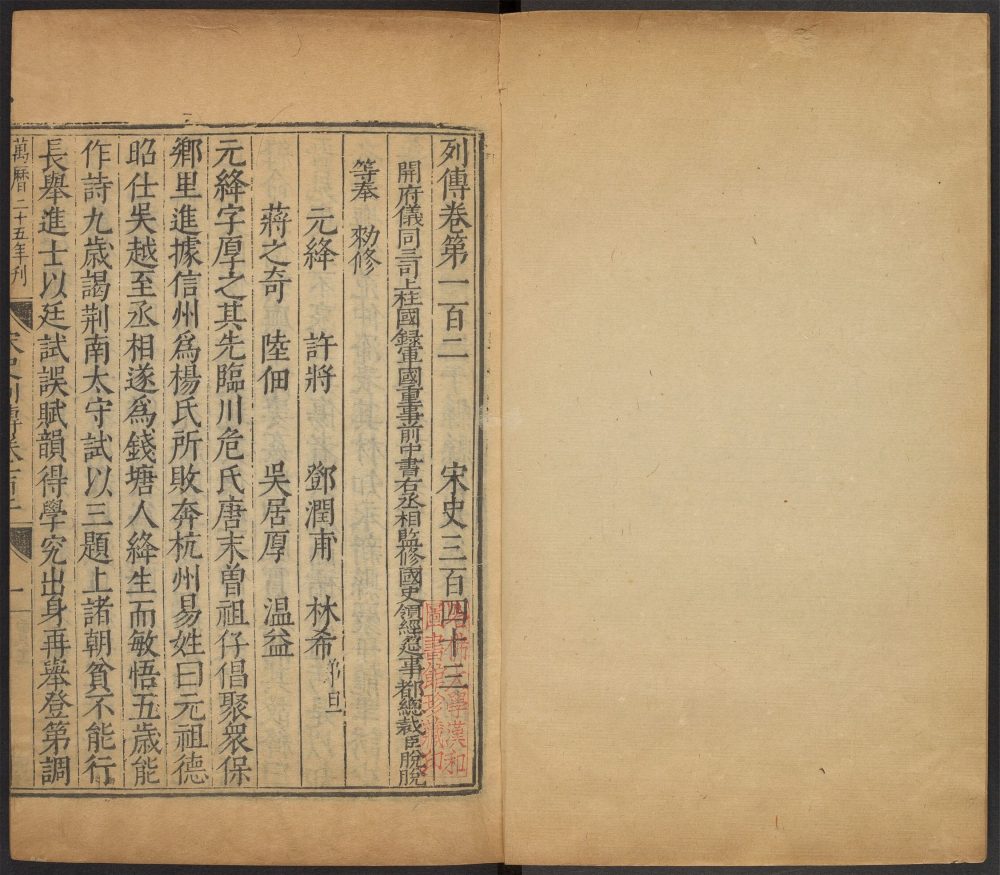 列傳卷第一百二 宋史三百四十三
開府儀同三司上柱國録軍國重事前中書右丞相監修國史領經筵事都總裁臣脫脫
等奉 勑修
元絳 許將 鄧潤甫 林希 弟旦
蔣之奇 陸佃 吳居厚 温益
元絳字厚之其先臨川危氏唐末曽祖仔倡聚衆保
鄉里進據信州爲楊氏所敗奔杭州易姓曰元祖德
昭仕吳越至丞相遂爲錢塘人絳生而敏悟五歲能
作詩九歲謁荆南太守試以三題上諸朝貧不能行
長舉進士以廷試誤賦韻得學究出身再舉登第調
萬曆二十五年刊
宋史列傳卷一百二
一
哈佛大學漢和
圖書館珍藏印